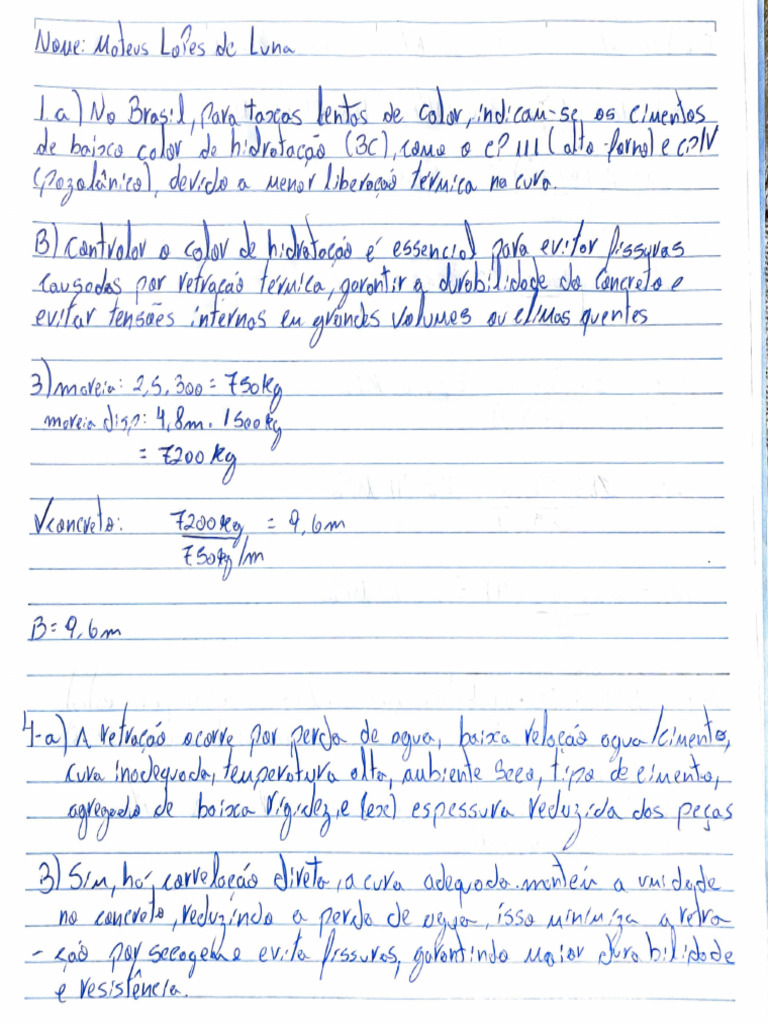 Nome: Mateus Lopes de Luna
1.a) No Brasil, para taxas lentas de calor, indicam-se os cimentos
de baixo calor de hidratação (BC), como o CP III (alto-forno) e CPIV
(pozolânico), devido a menor liberação térmica na cura.
B) Controlar o calor de hidratação é essencial para evitar fissuras
causadas por retração térmica, garantir a durabilidade do concreto e
evitar tensões internas em grandes volumes ou climas quentes
3) mareia: 2,5.300 = 750kg
mareia disp: 4,8m. 1500kg
= 7200 kg
Vconcreto: 7200kg = 9,6m
750kg/m
B = 9,6m
4-a) A retração ocorre por perda de agua, baixa relação agua/cimento,
cura inadequada, temperatura alta, ambiente seco, tipo de cimento,
agregado de baixa rigidez, e (ex) espessura reduzida das peças
B) Sim, há, correlação direta, a cura adequada mantém a umidade
no concreto, reduzindo a perda de agua, isso minimiza a retra
- ção por secagem e evita fissuras, garantindo maior durabilidade
e resistência.